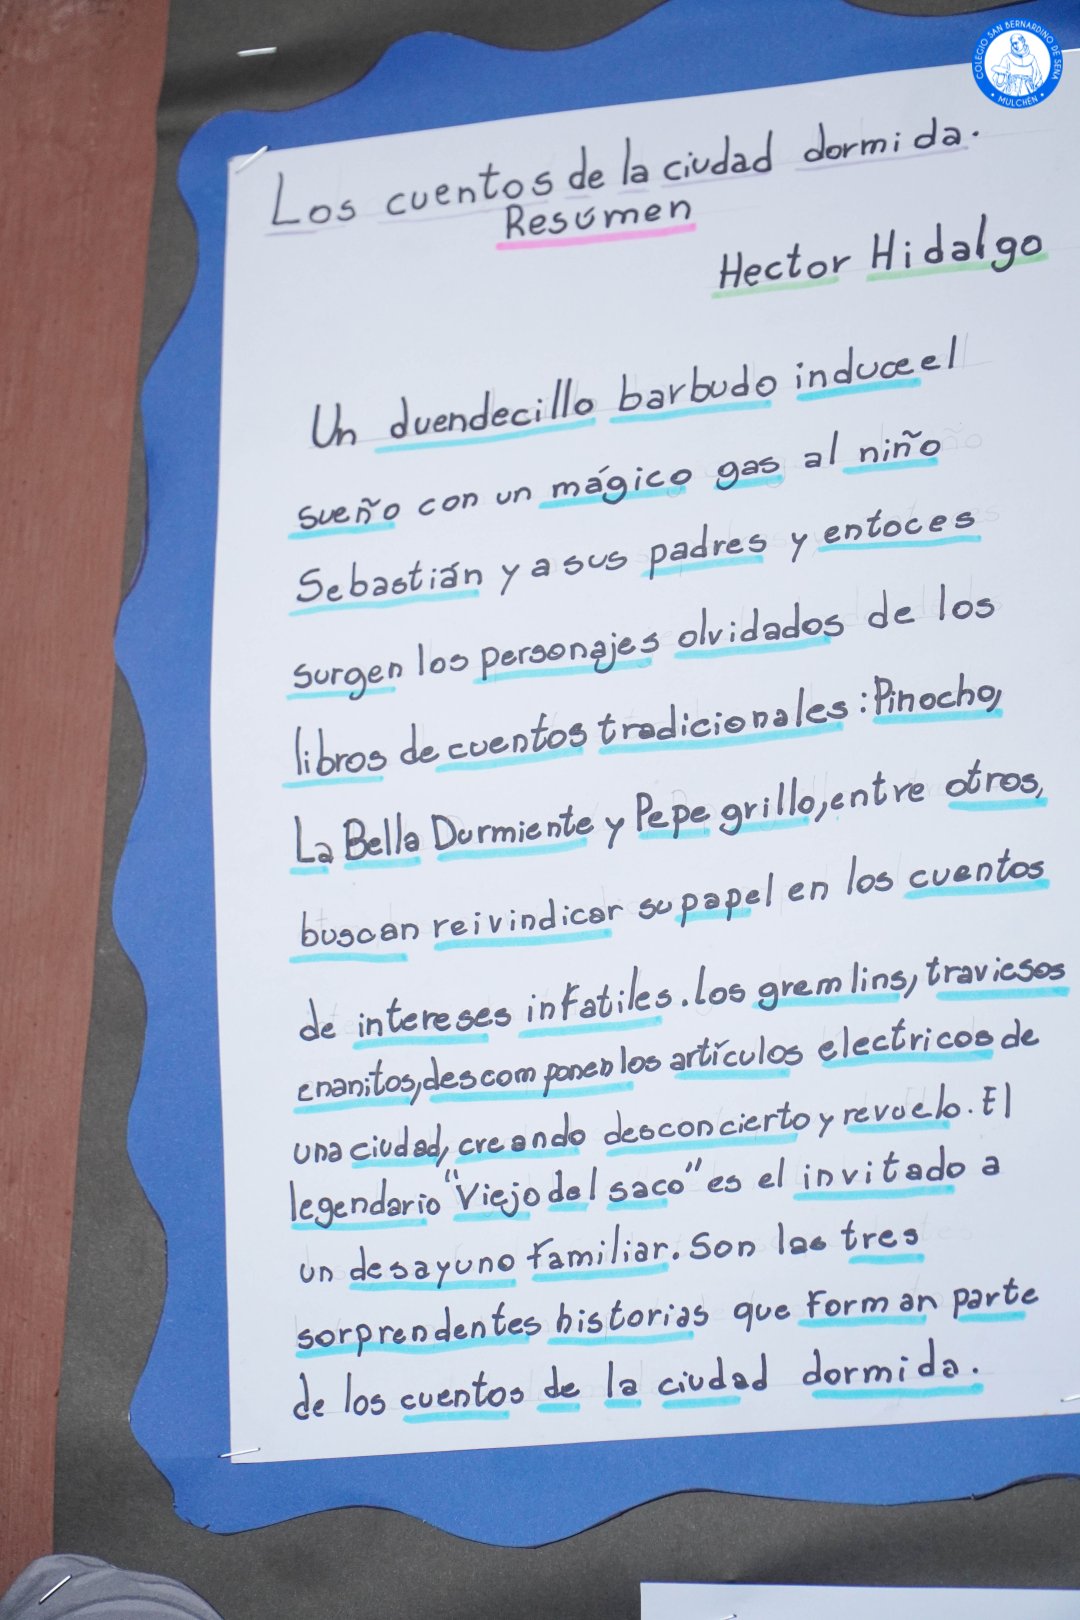 COLEGIO SAN BERNARDINO DE SENA
• MULCHÉN •
Los cuentos de la ciudad dormida.
Resúmen
Hector Hidalgo
Un duendecillo barbudo induce el
sueño con un mágico gas al niño
Sebastián y a sus padres y entoces
surgen los personajes olvidados de los
libros de cuentos tradicionales: Pinocho,
La Bella Durmiente y Pepe grillo, entre otros,
buscan reivindicar su papel en los cuentos
de intereses infatiles. los gremlins, traviesos
enanitos, descomponen los artículos electricos de
una ciudad, creando desconcierto y revuelo. El
legendario "Viejo del saco" es el invitado a
un desayuno familiar. Son las tres
sorprendentes historias que forman parte
de los cuentos de la ciudad dormida.